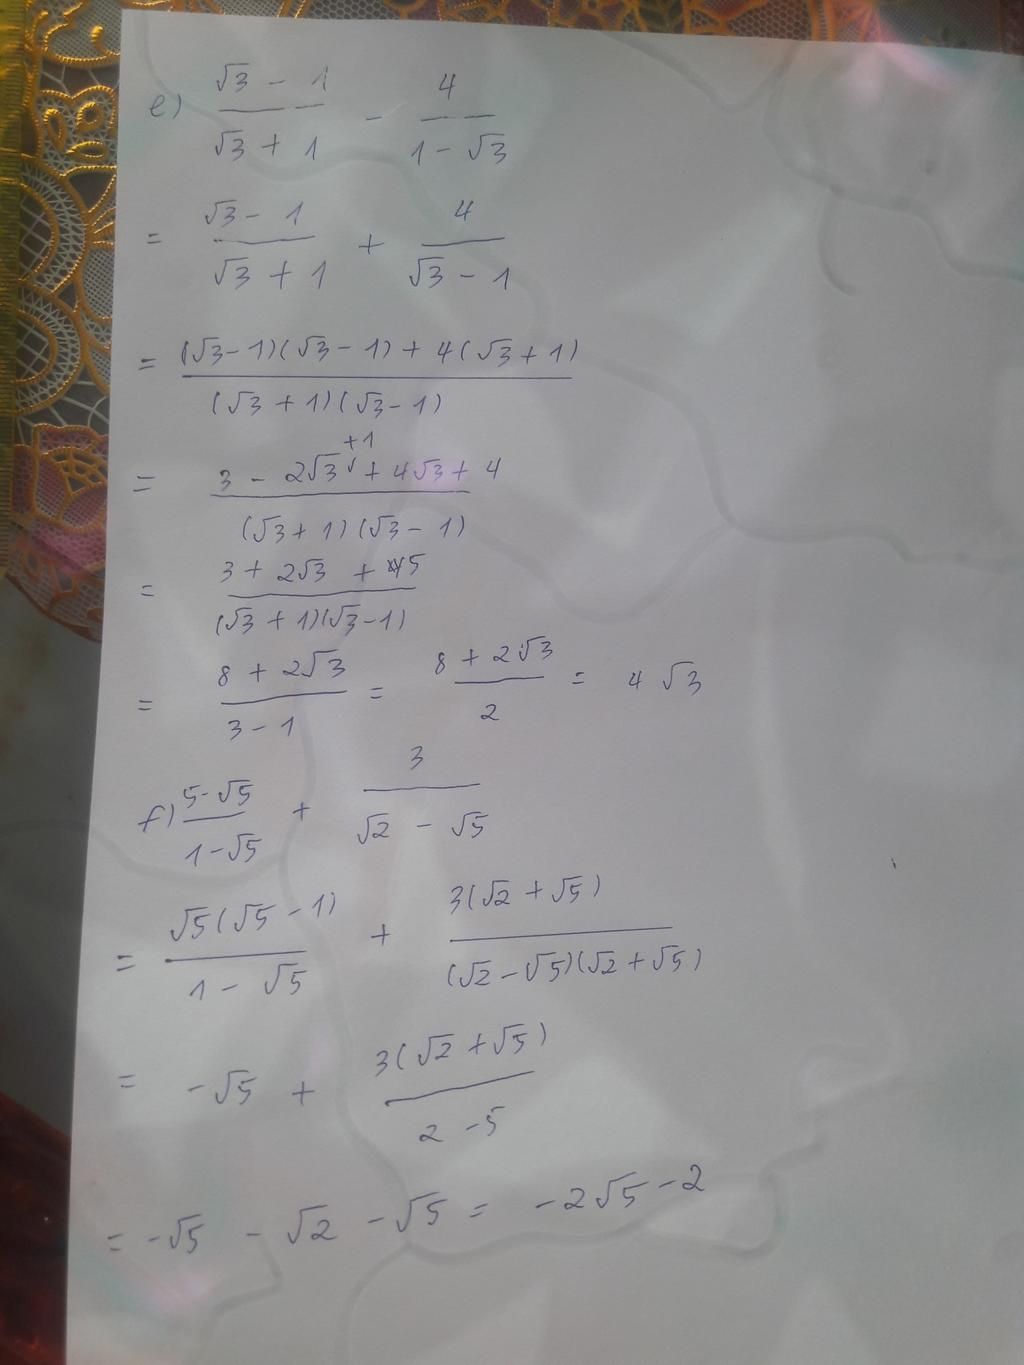 e) (√3 - 1)/(√3 + 1) - 4/(1 - √3)
= (√3 - 1)/(√3 + 1) + 4/(√3 - 1)
= ((√3-1)(√3-1) + 4(√3+1))/((√3+1)(√3-1))
= (3 - 2√3 +1 + 4√3 + 4)/((√3+1)(√3-1))
= (3 + 2√3 + 5)/((√3+1)(√3-1))
= (8 + 2√3)/(3 - 1) = (8 + 2√3)/2 = 4√3
f) (5-√5)/(1-√5) + 3/(√2 - √5)
= (√5(√5 - 1))/(1 - √5) + (3(√2 + √5))/((√2-√5)(√2+√5))
= -√5 + (3(√2+√5))/(2 - 5)
= -√5 - √2 - √5 = -2√5 - 2